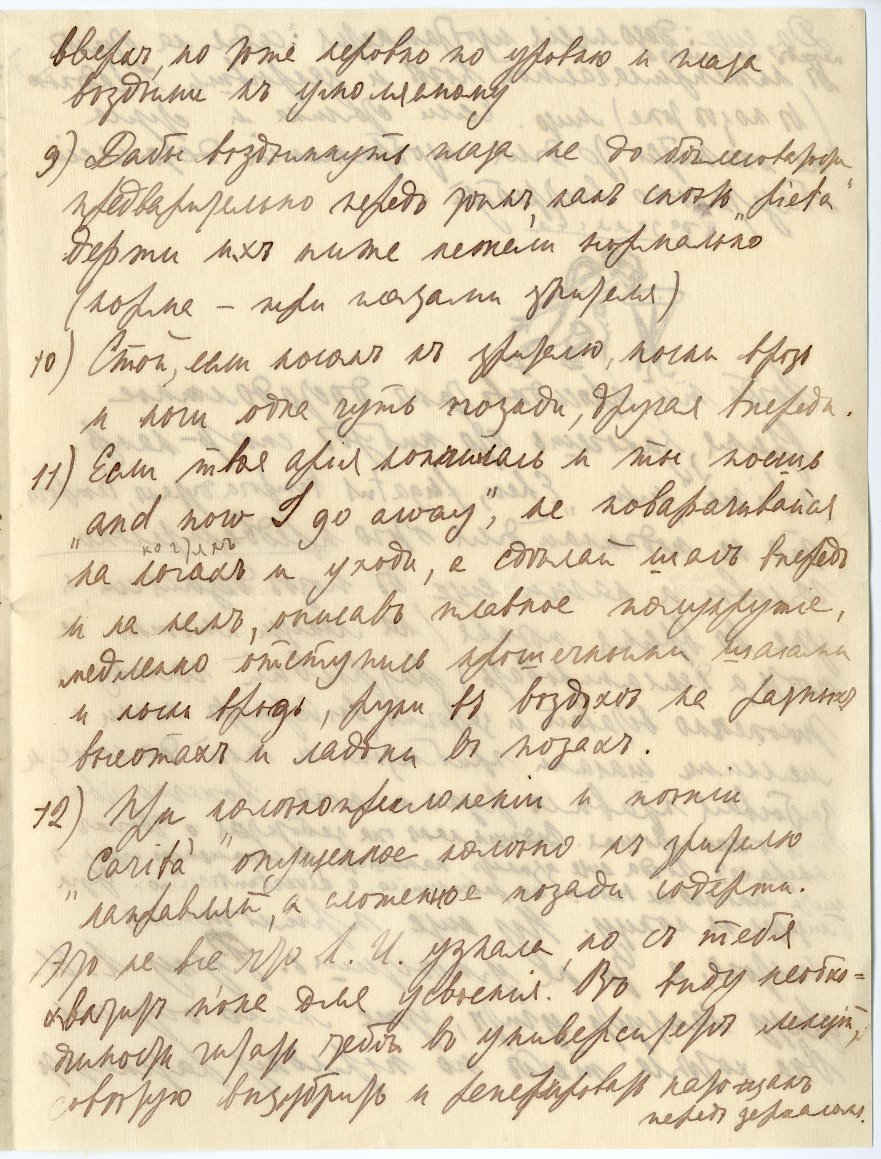 вверхъ, но тоже неровно по уровню и глаза
воздымай къ умоляемому
9) Дабы воздымнуть глаза не до
предварительно передъ тѣмъ, какъ споешь „pietà“
держи ихъ ниже нежели нормально
(норма — три глазами зрителя)
10) Стой, если бокомъ къ зрителю, носки врозь
и ноги одна чуть позади, другая впереди.
11) Если твоя арія кончилась и ты поешь
„and now I go away“, не поварачивайся
когтяхъ
на ногахъ и уходи, а сдѣлай шагъ впередъ
и на немъ, описавъ плавное полукружіе,
медленно отступись крошечными шагами
и носки врозь, руки въ воздухѣ на разныхъ
высотахъ и ладони въ позахъ.
12) При колѣнопреклоненіи и пѣніи
„Carità“ опущенное колѣно къ зрителю
направляй, а сложенное позади содержи.
Это не все что Л. И. узнала, но съ тебя
хватитъ пока для усвоенія. Въ виду необхо=
димости читать тебѣ въ университетѣ лекціи,
совѣтую вызубрить и репетировать
передъ зеркаломъ.